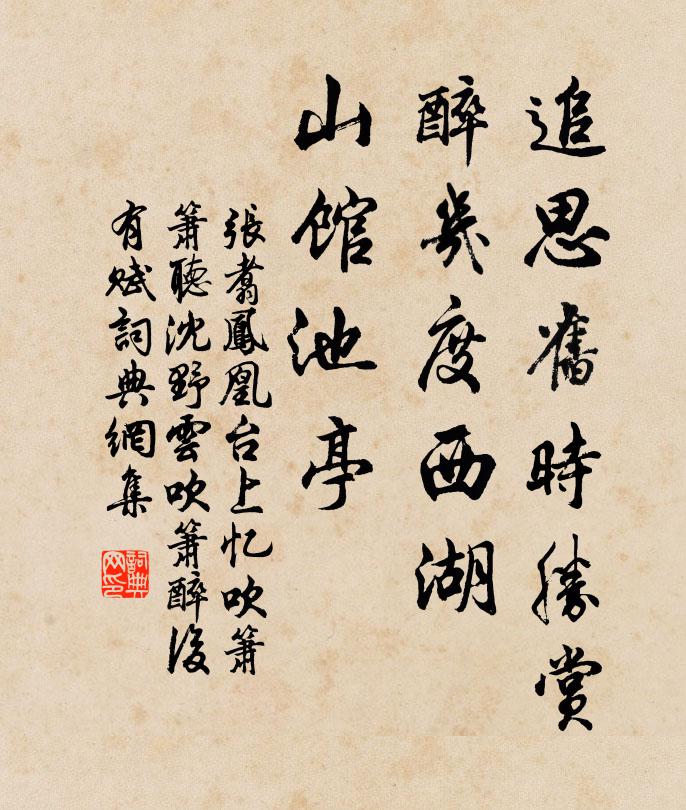 追思舊時勝賞
醉幾度西湖
山館池亭
張翥鳳凰台上忆吹簫
簫聽沈野雲吹簫醉後
有赋詞典網集
詞典網印